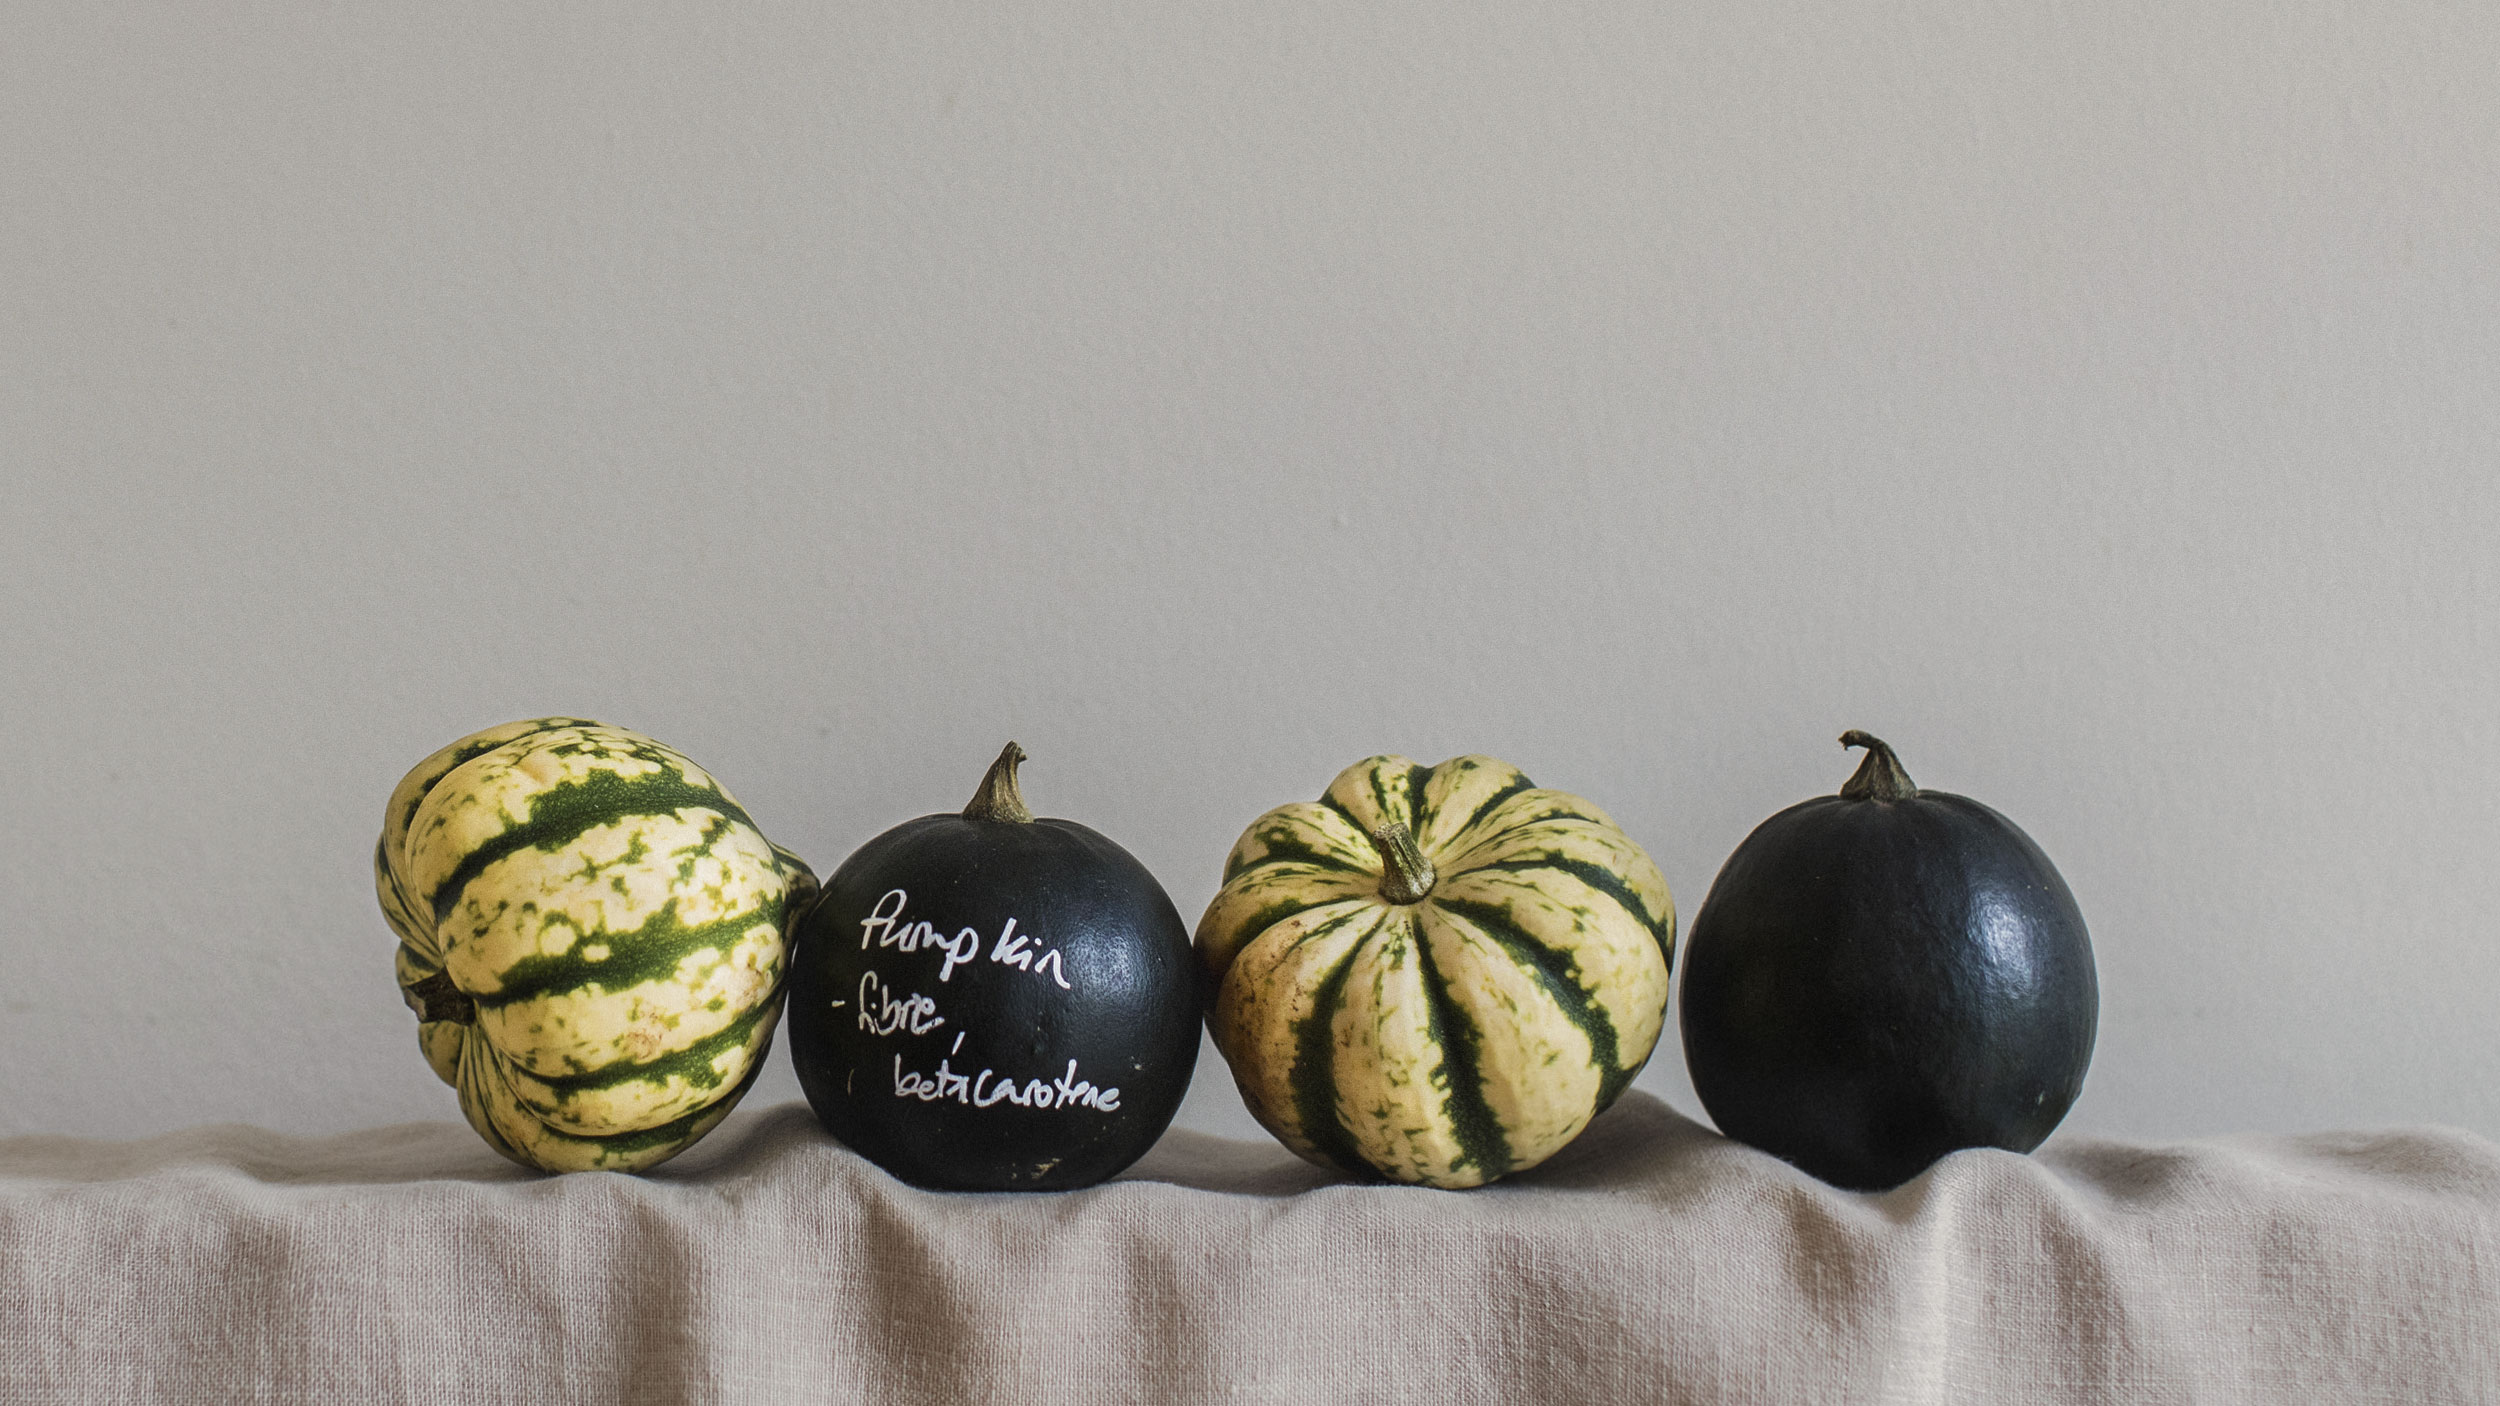 Pumpkin
- fibre,
betacarotene